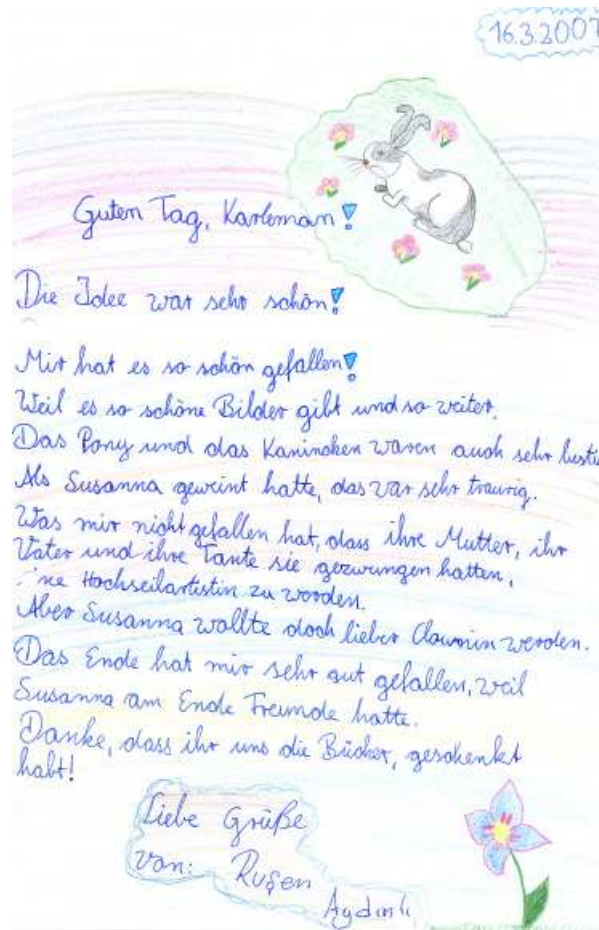 16.3.2007
Guten Tag, Karleman!
Die Idee war sehr schön!
Mir hat es so schön gefallen!
Weil es so schöne Bilder gibt und so weiter.
Das Pony und das Kaninchen waren auch sehr lusti
Als Susanna geweint hatte, das war sehr traurig.
Was mir nicht gefallen hat, dass ihre Mutter, ihr
Vater und ihre Tante sie gezwungen hatten,
ne Hochseilartistin zu werden.
Aber Susanna wollte doch lieber Clownin werden.
Das Ende hat mir sehr gut gefallen, weil
Susanna am Ende Freunde hatte.
Danke, dass ihr uns die Bücher, geschenkt
habt!
Liebe Grüße
von: Ruşen
Aydınlı